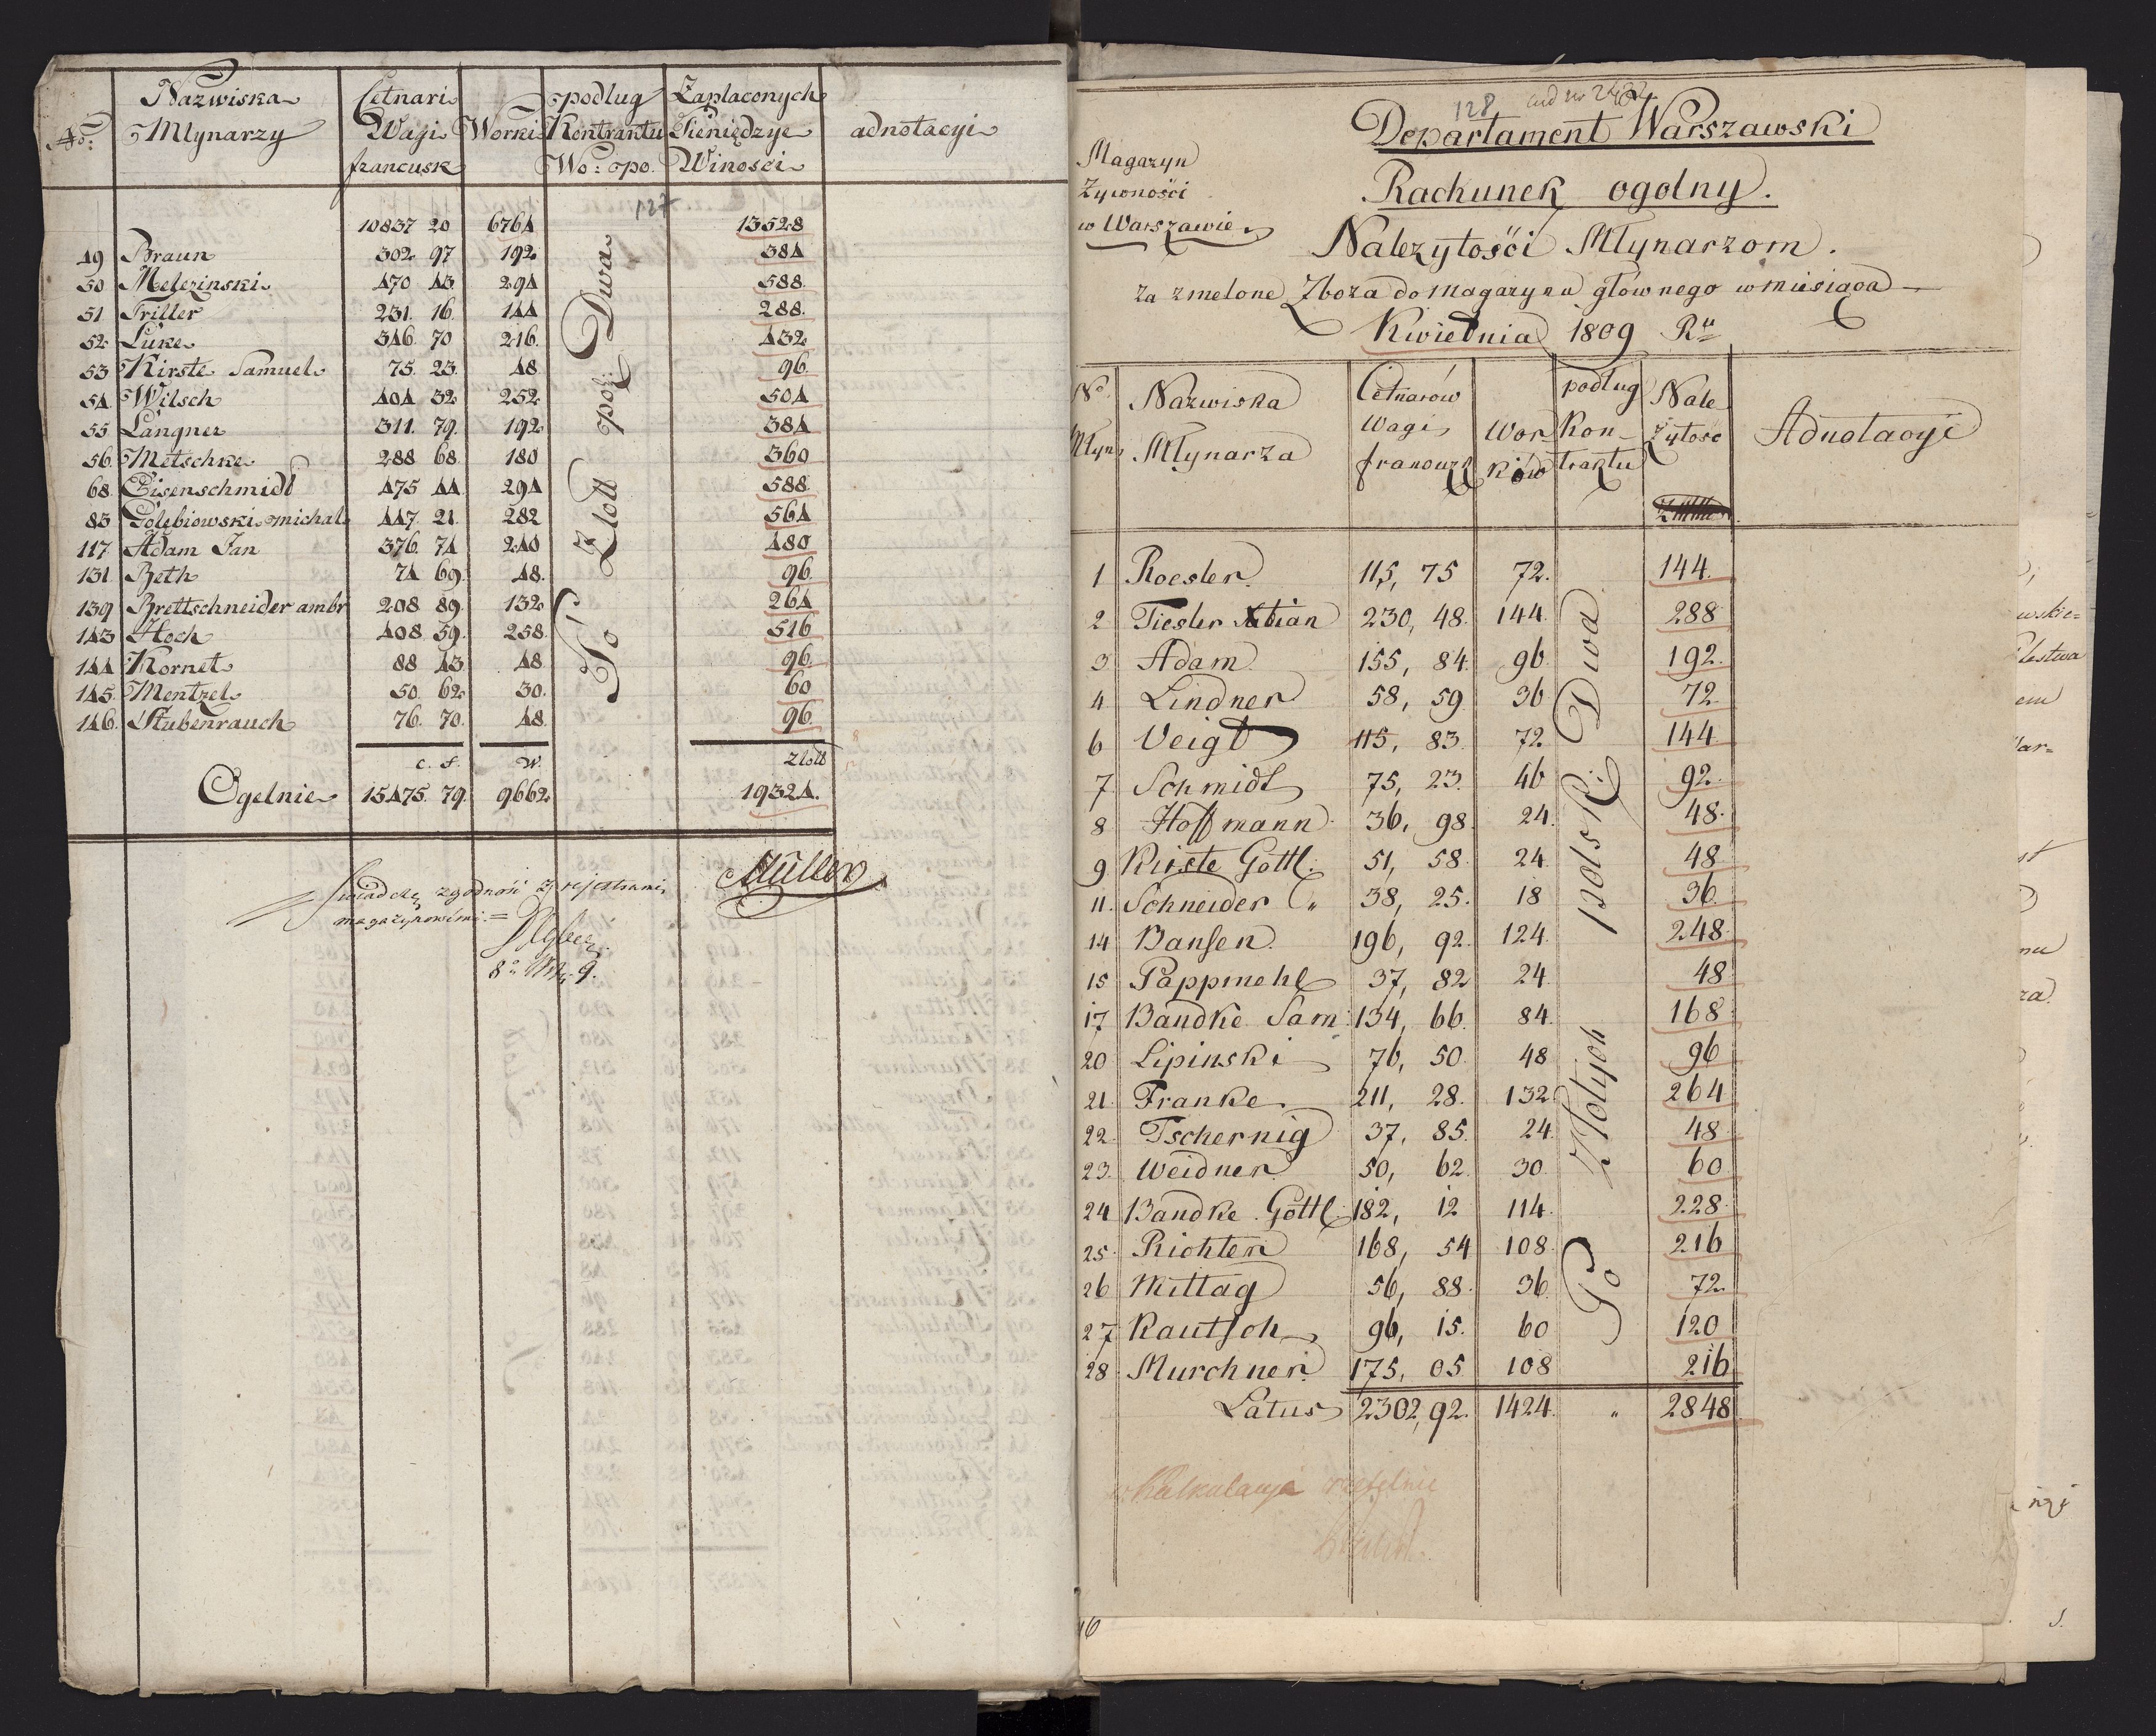 No: Nazwiska Mlynarzy Cetnari Wagi francusk Worki podlug Kontraktu Wo: spo. Zaplaconych Pieniędzye Winosci adnotacyi
127
10837 20 6764 13528
49 Braun 302 97 192 384
50 Melezinski 470 43 294 588
51 Triller 231. 16. 144 288.
52 Luke 346. 70 216. 432
53 Kirste Samuel 75. 23. 48 96
54 Wilsch 404 32 252 504
55 Langner 311. 79. 192 384
56 Metschke 288 68 180 360
68 Eisenschmidt 475 44 294 588
83 Golębiowski michal 447. 21. 282 564
117 Adam Jan 376. 74 240 480
131 Beth 74 69. 48. 96
139 Brettschneider ambr 208 89. 132 264
143 Hoch 408. 59. 258. 516
144 Kornet 88 43 48 96.
145. Mentzel 50. 62 30. 60
146. Stubenrauch 76. 70. 48. 96.
Po Zlott pol: Dwa
c. f. W. Zlott
Ogelnie 15475. 79. 9662 19324.
Müller
Swiadczę zgodność z rejestrami
magazynowemi =
128
Departament Warszawski
Magazyn
Zywnośći
w Warszawie
Rachunek ogolny.
Należytośći Młynarzom.
za zmelone Zboza do Magazynu głównego w miesiąca
Kwietnia 1809 Ru
No. Młyn Nazwiska Młynarza Cetnarów Wagi francuzk Worków podług Kontraktu Należytosc Adnotacyie
1 Roesler 115, 75 72. 144.
2 Tiesler Xtian 230, 48. 144. 288
3 Adam 155, 84. 96 192.
4 Lindner 58, 59 36 72
6 Veigt 115, 83. 72 144
7 Schmidt 75, 23. 46 92.
8 Hoffmann 36, 98. 24. 48.
9 Kirste Gottl: 51, 58. 24 48
11. Schneider " 38, 25. 18 36.
14 Bansen 196, 92. 124. 248.
15 Pappmehl 37, 82 24. 48
17 Bandke Sam: 134, 66. 84. 168
20 Lipinski 76, 50. 48 96
21. Franke 211, 28. 132 264
22. Tschernig 37, 85. 24. 48
23. Weidner 50, 62 30. 60
24 Bandke Gottl: 182, 12 114. 228.
25. Richter 168, 54 108. 216
26 Mittag 56, 88. 36. 72.
27 Kautsch 96, 15. 60 120
28 Murchner 175, 05 108 216
Po Złotych polsk: Dwa
Latus 2302, 92. 1424. " 2848
w kalkulacyi rzetelnie